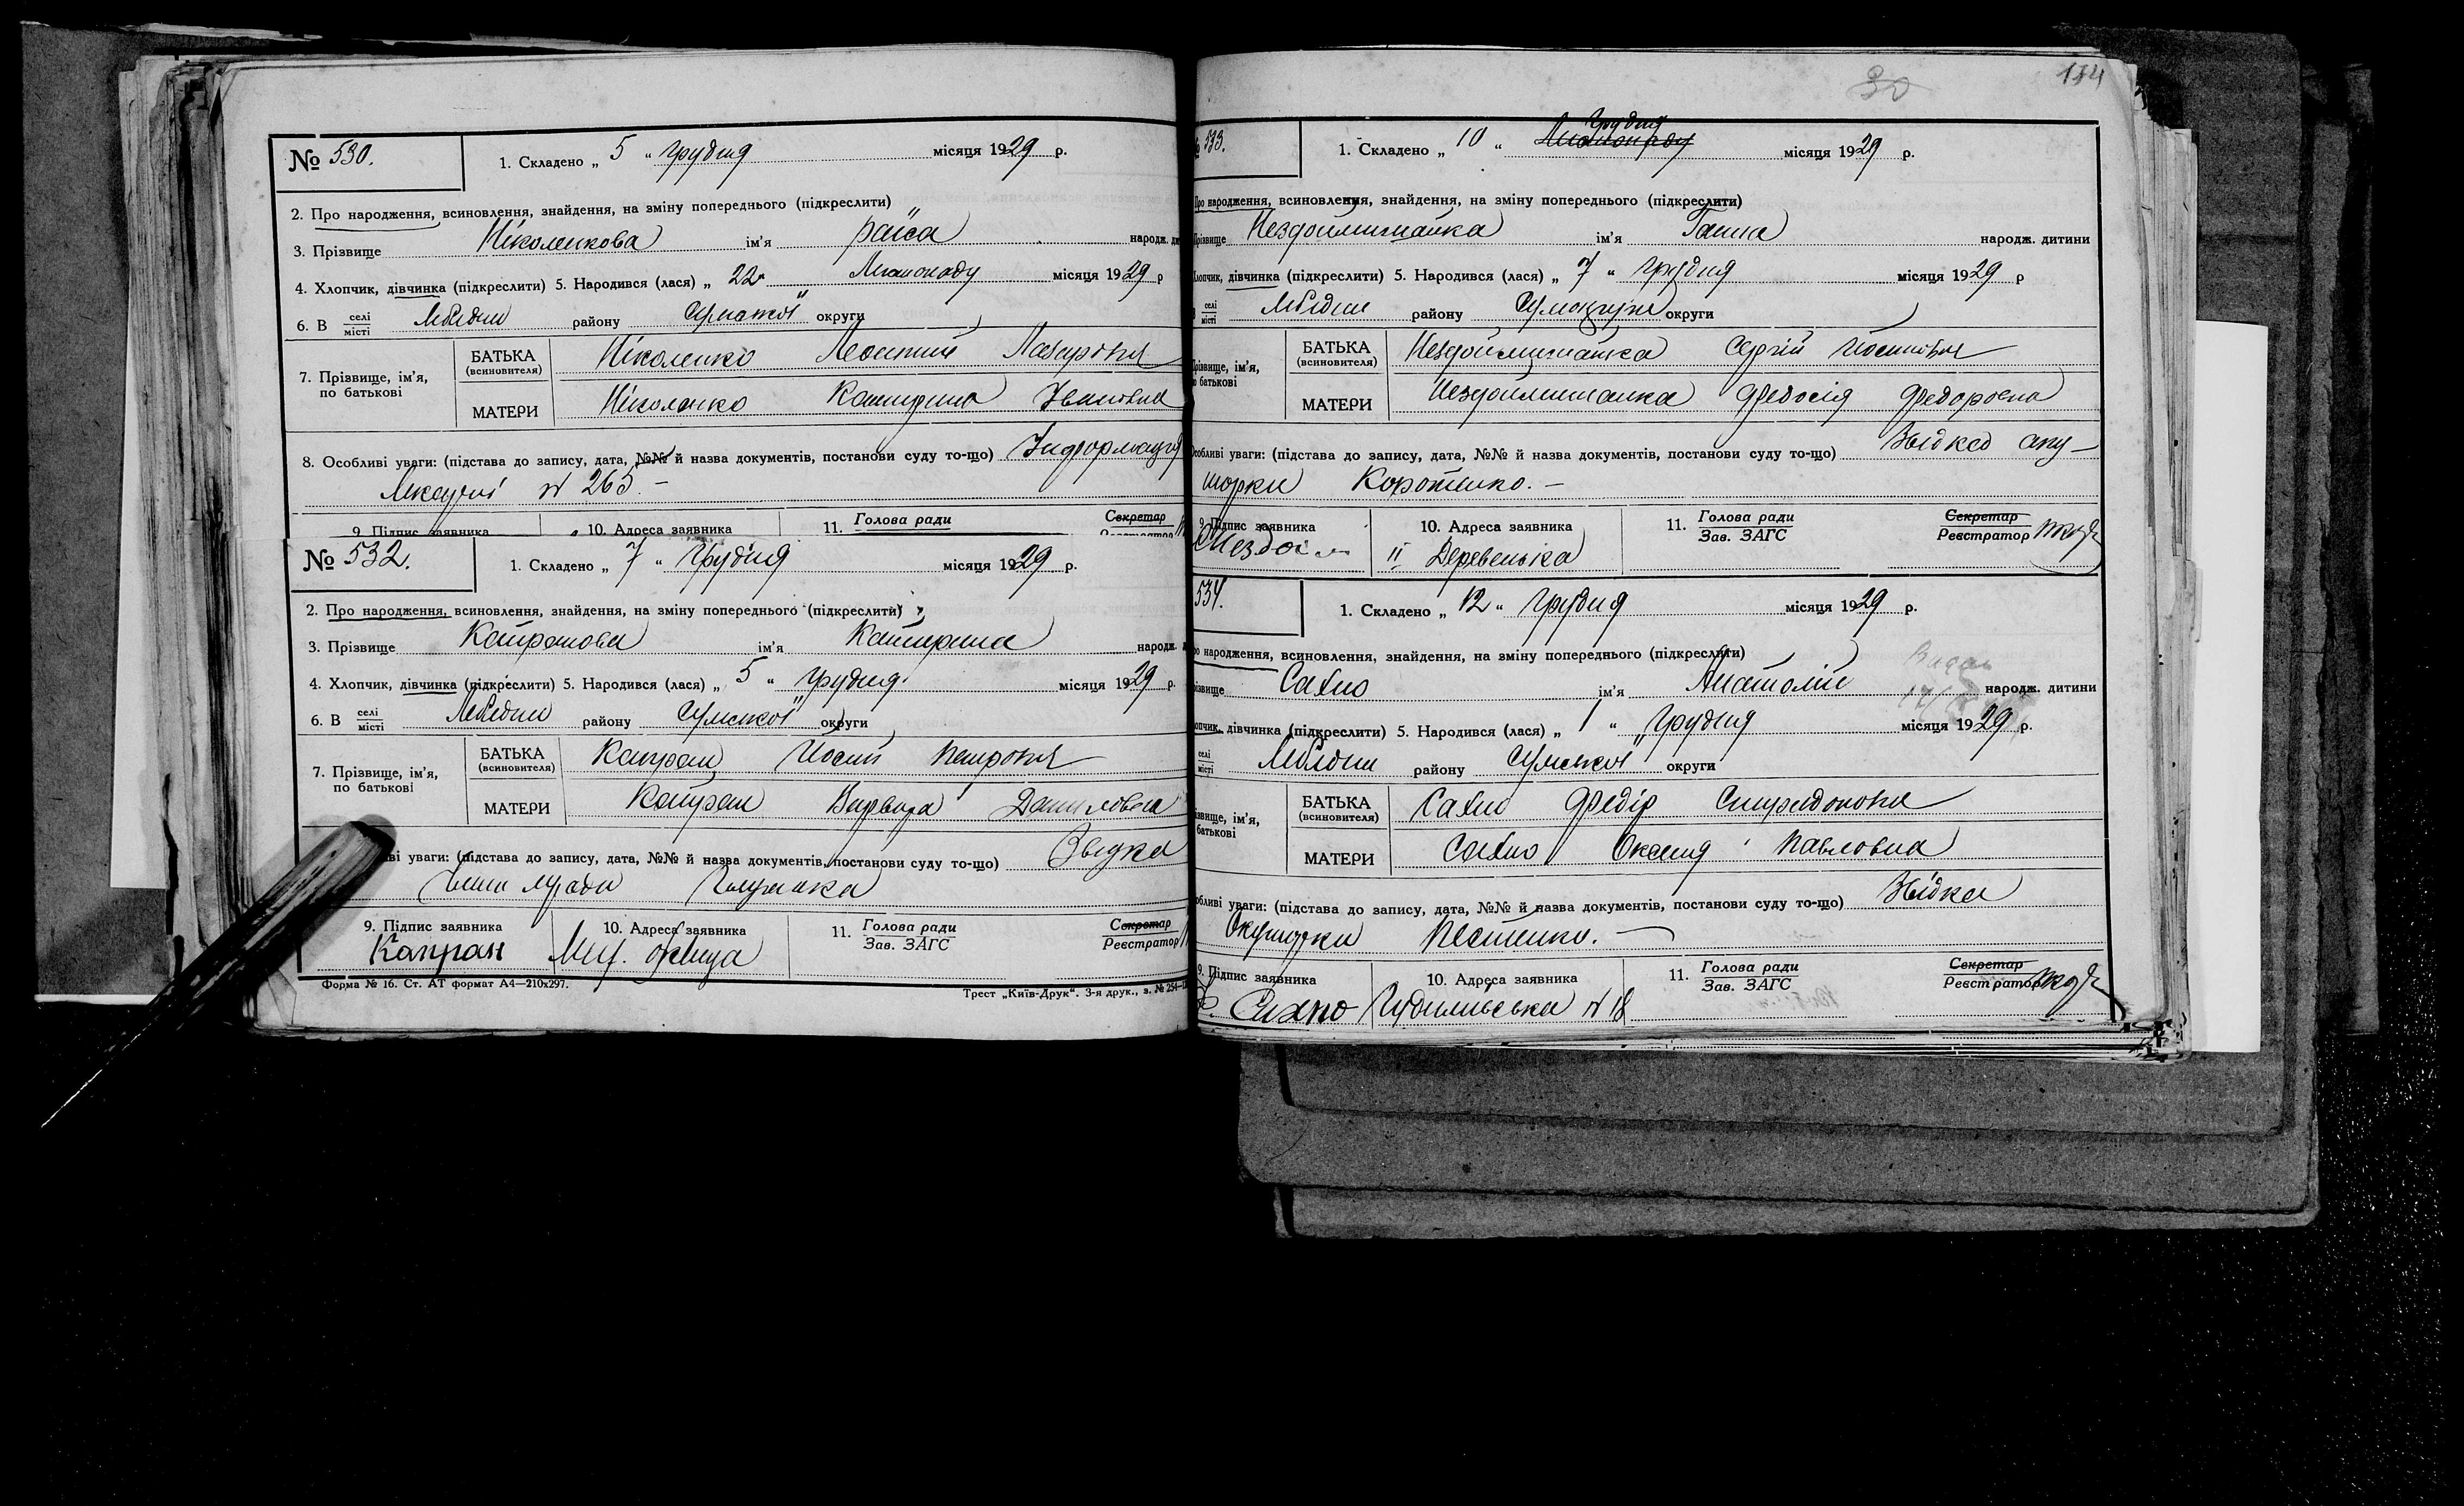 № 530.
1. Складено „ 5 “ грудня місяця 1929 р.
2. Про народження, всиновлення, знайдення, на зміну попереднього (підкреслити)
3. Прізвище Ніколенкова ім'я раїса народж. ди
4. Хлопчик, дівчинка (підкреслити) 5. Народився (лася) „ 22 “ Листопаду місяця 1929 р
6. В селі місті Лебедин району Сумської округи
7. Прізвище, ім'я, по батькові
БАТЬКА (всиновителя) Ніколенко Леонтий Лазарович
МАТЕРИ Ніколенко Катерина Івановна
8. Особливі уваги: (підстава до запису, дата, №№ й назва документів, постанови суду то-що) Інформація
Лікарні № 265. –
9. Підпис заявника 10. Адреса заявника 11. Голова ради Секретар
№ 532.
1. Складено „ 7 “ Грудня місяця 1929 р.
2. Про народження, всиновлення, знайдення, на зміну попереднього (підкреслити)
3. Прізвище Капранова ім'я Катерина народж. д
4. Хлопчик, дівчинка (підкреслити) 5. Народився (лася) „ 5 “ грудня місяця 1929 р.
6. В селі місті Лебедин району Сумської округи
7. Прізвище, ім'я, по батькові
БАТЬКА (всиновителя) Капран Йосип Петрович
МАТЕРИ Капран Варвара Даниловна
ві уваги: (підстава до запису, дата, №№ й назва документів, постанови суду то-що) Звідка
9. Підпис заявника 10. Адреса заявника 11. Голова ради Зав. ЗАГС Секретар Реєстратор
Капран
Форма № 16. Ст. АТ формат А4—210x297.
Трест „Київ-Друк“. 3-я друк., з. № 254—
30
174
№ 533.
1. Складено „ 10 “ Листопаду Грудня місяця 1929 р.
Про народження, всиновлення, знайдення, на зміну попереднього (підкреслити)
Прізвище Нездоймишапка ім'я Ганна народж. дитини
Хлопчик, дівчинка (підкреслити) 5. Народився (лася) „ 7 “ грудня місяця 1929 р
селі місті Лебедин району Сумщини округи
Прізвище, ім'я, по батькові
БАТЬКА (всиновителя) Нездоймишапка Сергій Йосипович
МАТЕРИ Нездоймишапка Федосія Федоровна
Особливі уваги: (підстава до запису, дата, №№ й назва документів, постанови суду то-що) Звідка аку–
шорки Коротенко. –
9. Підпис заявника 10. Адреса заявника 11. Голова ради Зав. ЗАГС Секретар Реєстратор
Нездойм II Деревенька
534.
1. Складено „ 12 “ грудня місяця 1929 р.
ро народження, всиновлення, знайдення, на зміну попереднього (підкреслити)
різвище Сахно ім'я Анатолій народж. дитини
опчик, дівчинка (підкреслити) 5. Народився (лася) „ 1 “ Грудня місяця 1929 р.
селі місті Лебедин району Сумської округи
ізвище, ім'я, батькові
БАТЬКА (всиновителя) Сахно Федір Спиридонович
МАТЕРИ Сахно Оксенія Павловна
обливі уваги: (підстава до запису, дата, №№ й назва документів, постанови суду то-що) Звідка
Окушорки
9. Підпис заявника 10. Адреса заявника 11. Голова ради Зав. ЗАГС Секретар Реєстратор
Сахно № 18